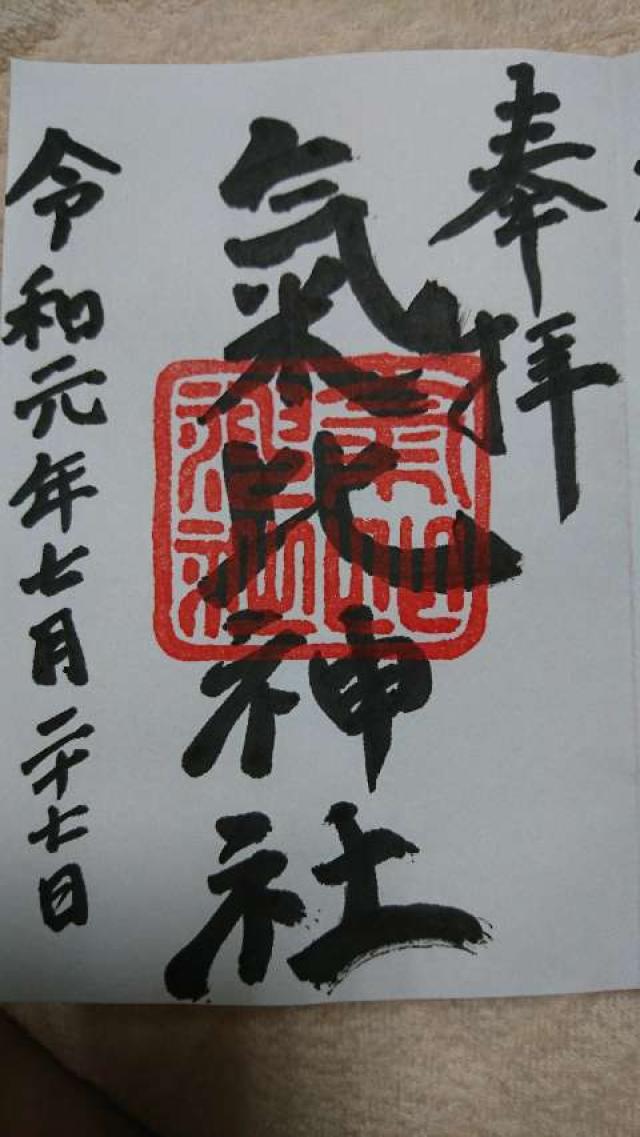 奉拝
氣比神社
令和元年七月二十七日